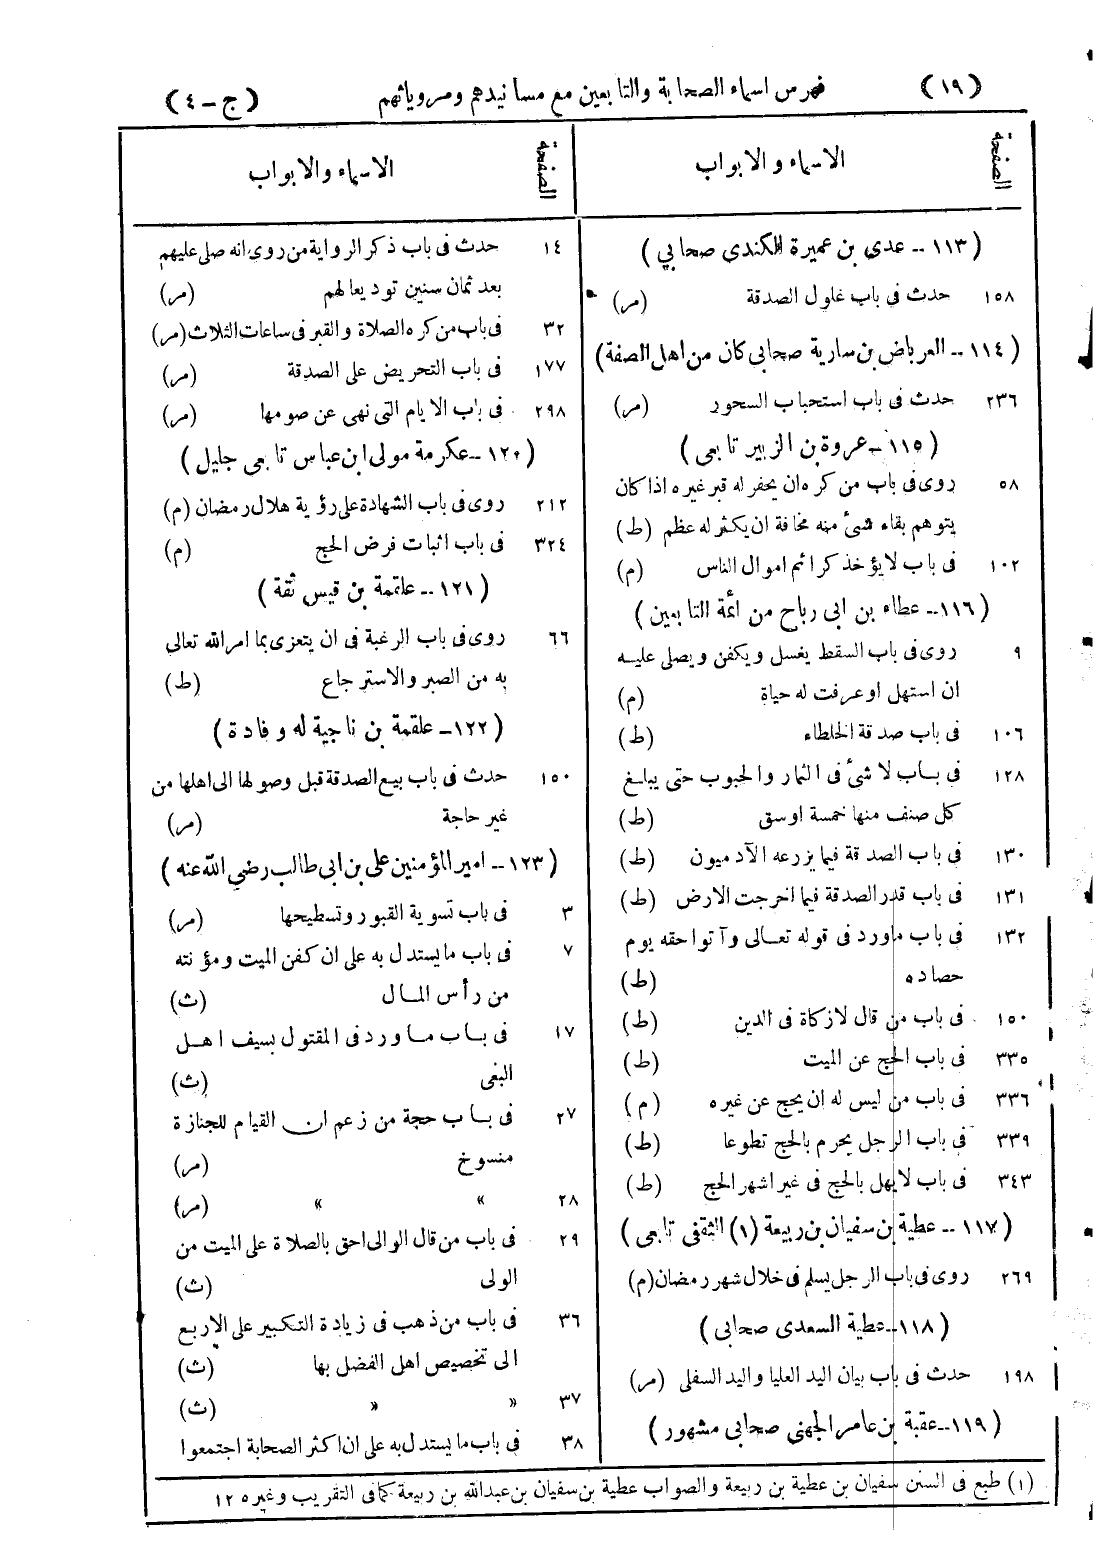 (١٩) فهرس اسماء الصحابة والتابعين مع مسانيدهم ومروياتهم (ج-٤)
الصفحة الاسماء والابواب
(١١٣ -- عدى بن عميرة الكندى صحابي)
١٥٨ حدث فى باب غلول الصدقة (مر)
(١١٤ -- العرباض بن سارية صحابى كان من اهل الصفة)
٢٣٦ حدث فى باب استحباب السحور (مر)
(١١٥ - عروة بن الزبير تابعى)
٥٨ روى فى باب من كره ان يحفر له قبر غيره اذا كان
يتوهم بقاء شئ منه مخافة ان يكثر له عظم (ط)
١٠٢ فى باب لا يؤخذ كرائم اموال الناس (م)
(١١٦ -- عطاء بن ابى رباح من ائمة التابعين)
٩ روى فى باب السقط يغسل ويكفن ويصلى عليه
ان استهل او عرفت له حياة (م)
١٠٦ فى باب صدقة الخلطاء (ط)
١٢٨ فى باب لا شئ فى الثمار والحبوب حتى يبلغ
كل صنف منها خمسة اوسق (ط)
١٣٠ فى باب الصدقة فيما يزرعه الآدميون (ط)
١٣١ فى باب قدر الصدقة فيما اخرجت الارض (ط)
١٣٢ فى باب ماورد فى قوله تعالى وآتوا حقه يوم
حصاده (ط)
١٥٠ فى باب من قال لا زكاة فى الدين (ط)
٣٣٥ فى باب الحج عن الميت (ط)
٣٣٦ فى باب من ليس له ان يحج عن غيره (م)
٣٣٩ فى باب الرجل يحرم بالحج تطوعا (ط)
٣٤٣ فى باب لا يهل بالحج فى غير اشهر الحج (ط)
(١١٧ -- عطية بن سفيان بن ربيعة (١) الثقفى تابعى)
٢٦٩ روى فى باب الرجل يسلم فى خلال شهر رمضان (م)
(١١٨ - عطية السعدى صحابى)
١٩٨ حدث فى باب بيان اليد العليا واليد السفلى (مر)
(١١٩ -- عقبة بن عامر الجهنى صحابى مشهور)
الصفحة الاسماء والابواب
١٤ حدث فى باب ذكر الرواية من روى انه صلى عليهم
بعد ثمان سنين توديعا لهم (مر)
٣٢ فى باب من كره الصلاة والقبر فى ساعات الثلاث (مر)
١٧٧ فى باب التحريض على الصدقة (مر)
٢٩٨ فى باب الايام التى نهى عن صومها (مر)
(١٢٠ -- عكرمة مولى ابن عباس تابعى جليل)
٢١٢ روى فى باب الشهادة على رؤية هلال رمضان (م)
٣٢٤ فى باب اثبات فرض الحج (م)
(١٢١ -- علقمة بن قيس ثقة)
٦٦ روى فى باب الرغبة فى ان يتعزى بما امر الله تعالى
به من الصبر والاسترجاع (ط)
(١٢٢ - علقمة بن ناجية له وفادة)
١٥٠ حدث فى باب بيع الصدقة قبل وصولها الى اهلها من
غير حاجة (مر)
(١٢٣ -- امير المؤمنين على بن ابى طالب رضي الله عنه)
٣ فى باب تسوية القبور وتسطيحها (مر)
٧ فى باب ما يستدل به على ان كفن الميت ومؤنته
من رأس المال (ث)
١٧ فى باب ماورد فى المقتول بسيف اهل
البغى (ث)
٢٧ فى باب حجة من زعم ان القيام للجنازة
منسوخ (مر)
٢٨ » » (مر)
٢٩ فى باب من قال الوالى احق بالصلاة على الميت من
الولى (ث)
٣٦ فى باب من ذهب فى زيادة التكبير على الاربع
الى تخصيص اهل الفضل بها (ث)
٣٧ » » (ث)
٣٨ فى باب ما يستدل به على ان اكثر الصحابة اجتمعوا
(١) طبع فى السنن سفيان بن عطية بن ربيعة والصواب عطية بن سفيان بن عبدالله بن ربيعة كما فى التقريب وغيره ١٢